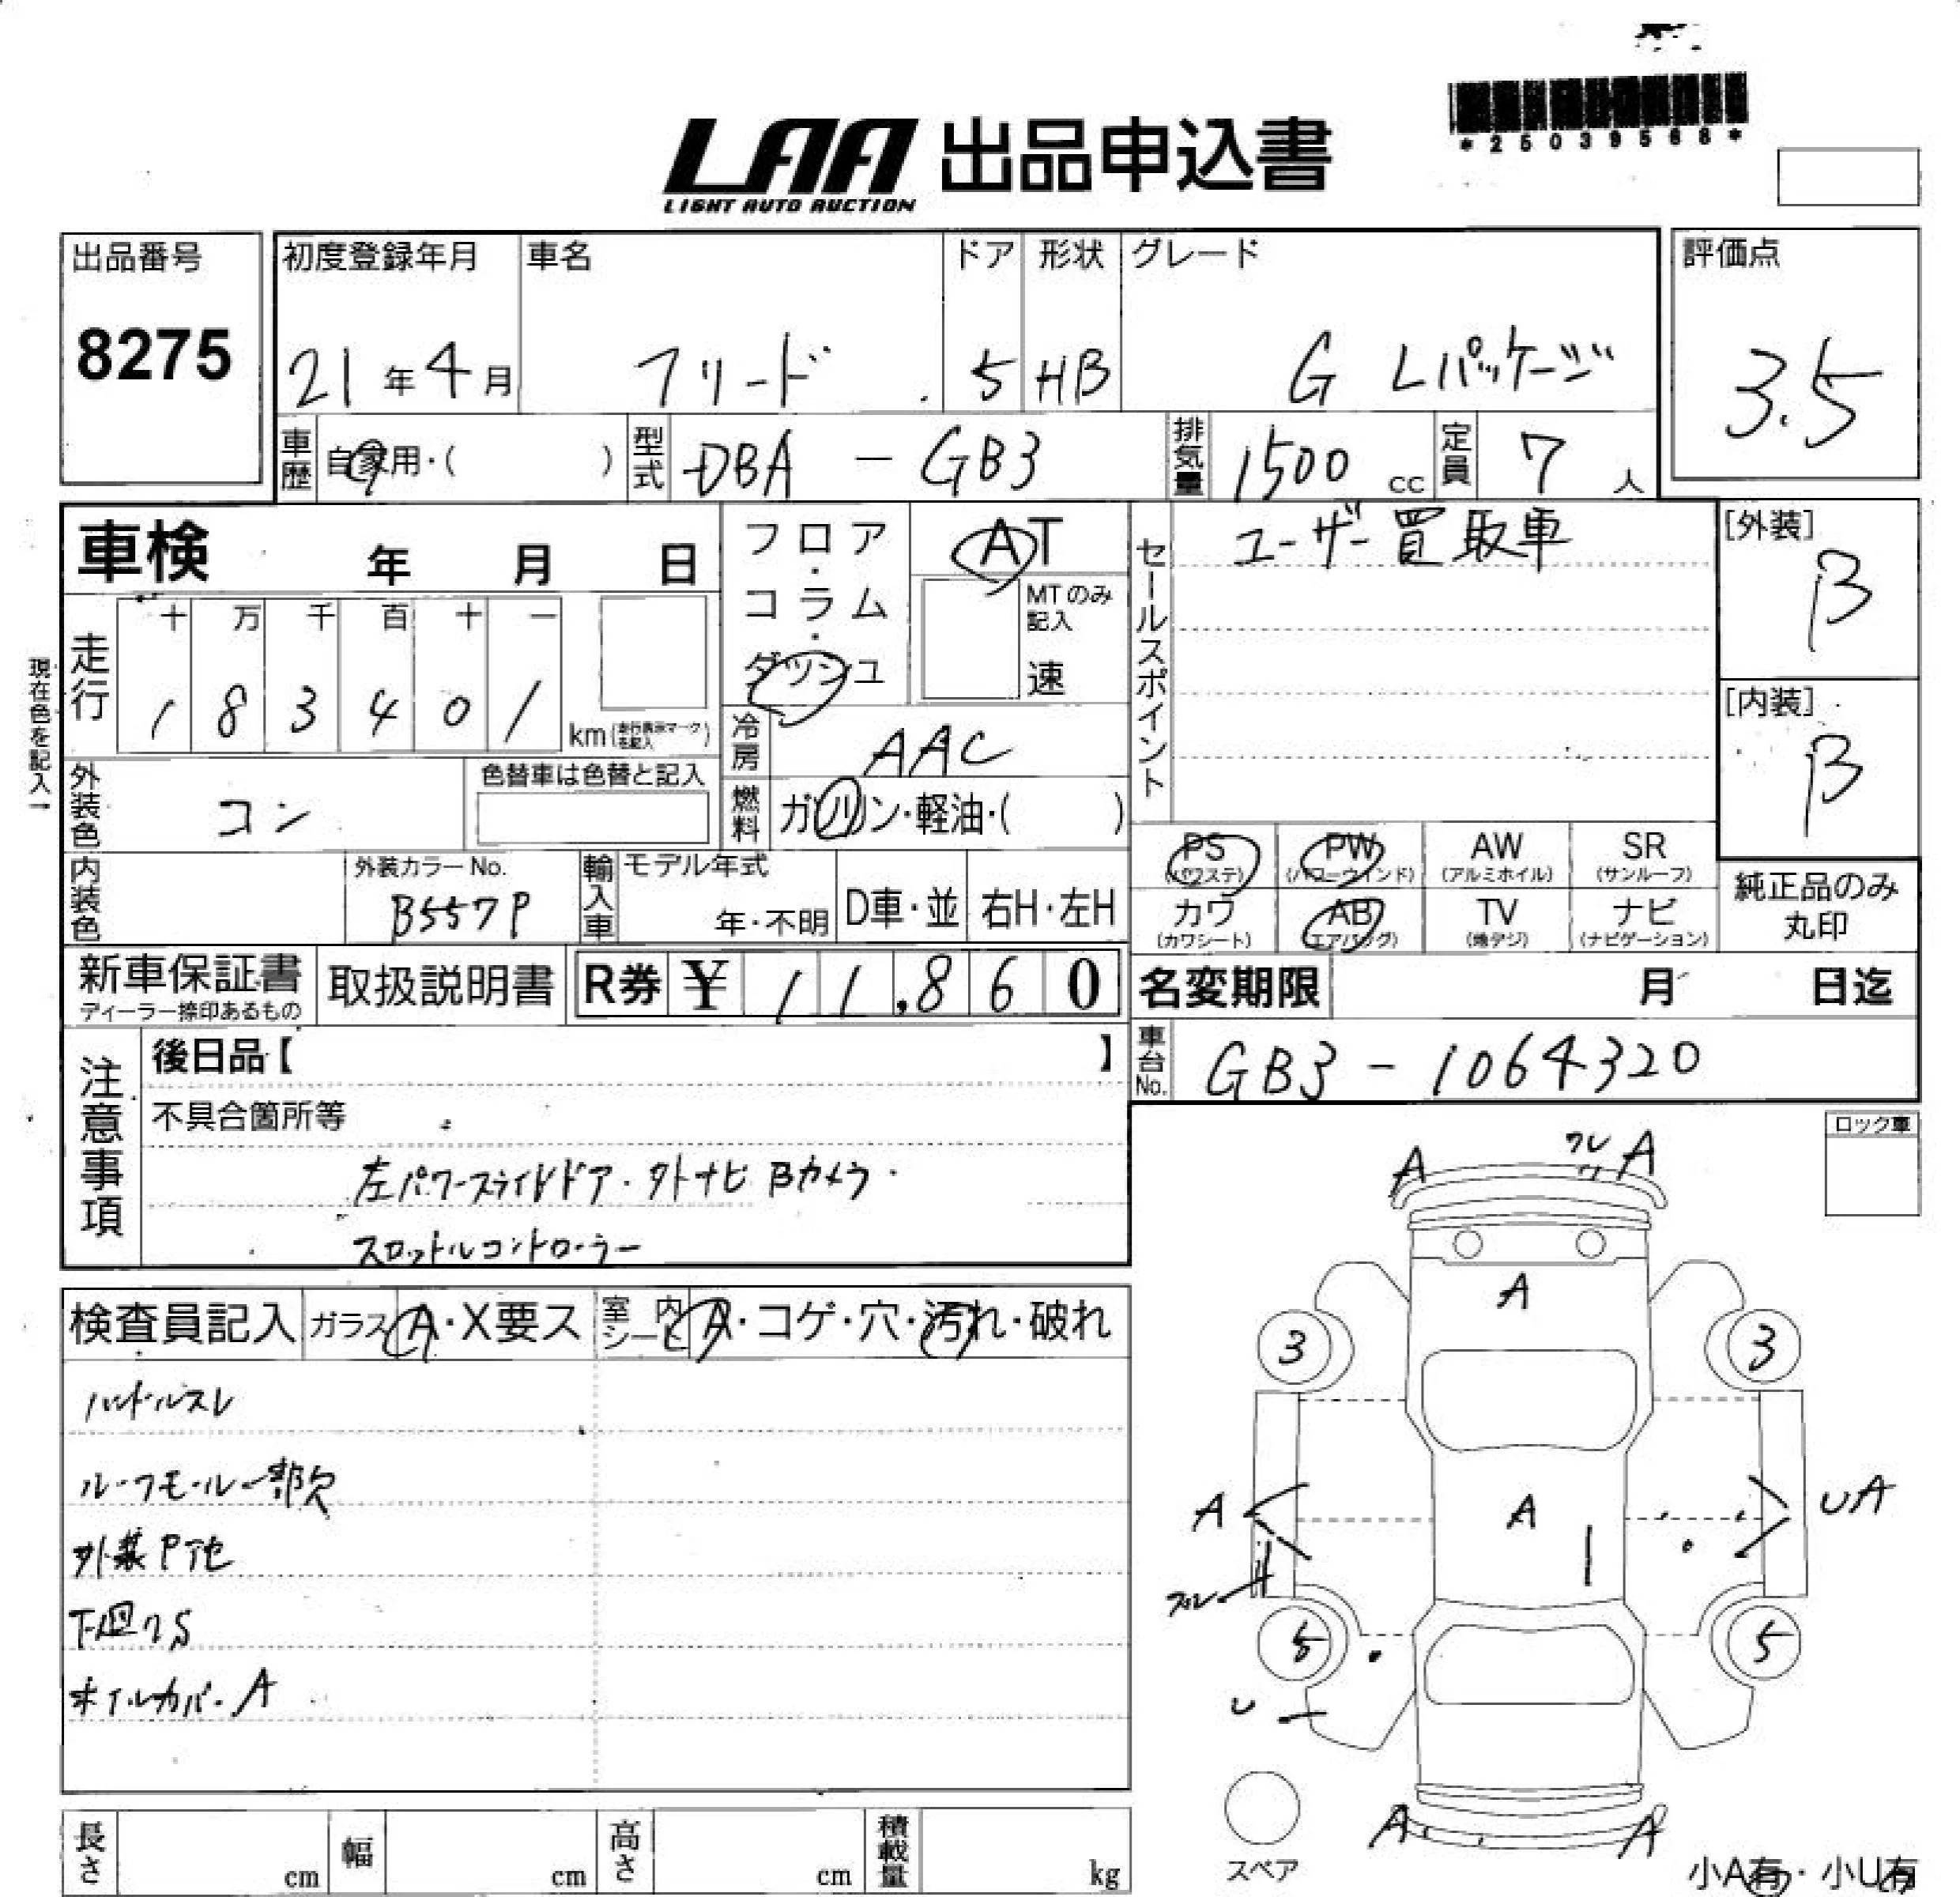 *25039568*
LAA 出品申込書
LIGHT AUTO AUCTION
出品番号 初度登録年月 車名 ドア 形状 グレード 評価点
8275 21年4月 フリード 5 HB G Lパッケージ 3.5
車歴 自家用・( ) 型式 DBA - GB3 排気量 1500 cc 定員 7 人
車検 年 月 日
フロア・コラム・ダッシュ
AT
MTのみ記入
速
セールスポイント ユーザー買取車
[外装] B
現在色を記入→
走行 十 万 千 百 十 一
1 8 3 4 0 1
km(走行表示マークを記入)
[内装] B
冷房 AAC
外装色 コン 色替車は色替と記入
燃料 ガソリン・軽油・( )
PS (パワステ) PW (パワーウインド) AW (アルミホイル) SR (サンルーフ)
カワ (カワシート) AB (エアバッグ) TV (地デジ) ナビ (ナビゲーション)
純正品のみ丸印
内装色 外装カラーNo. B557P 輸入車 モデル年式 年・不明 D車・並 右H・左H
新車保証書 取扱説明書 R券 ¥ 11,860 名変期限 月 日迄
ディーラー捺印あるもの
車台No. GB3 - 1064320
注意事項 後日品【 】
不具合箇所等
左パワースライドドア・外ナビ Bカメラ・
スロットルコントローラー
ロック車
検査員記入 ガラス A・X要ス 室内シート A・コゲ・穴・汚れ・破れ
ハンドルスレ
ルーフモール一部欠
外装P他
下廻りS
ホイルカバーA
A ワレ A
A
3 3
A A UA
スレ
5 5
U
A A
スペア
小A有・小U有
長さ cm 幅 cm 高さ cm 積載量 kg